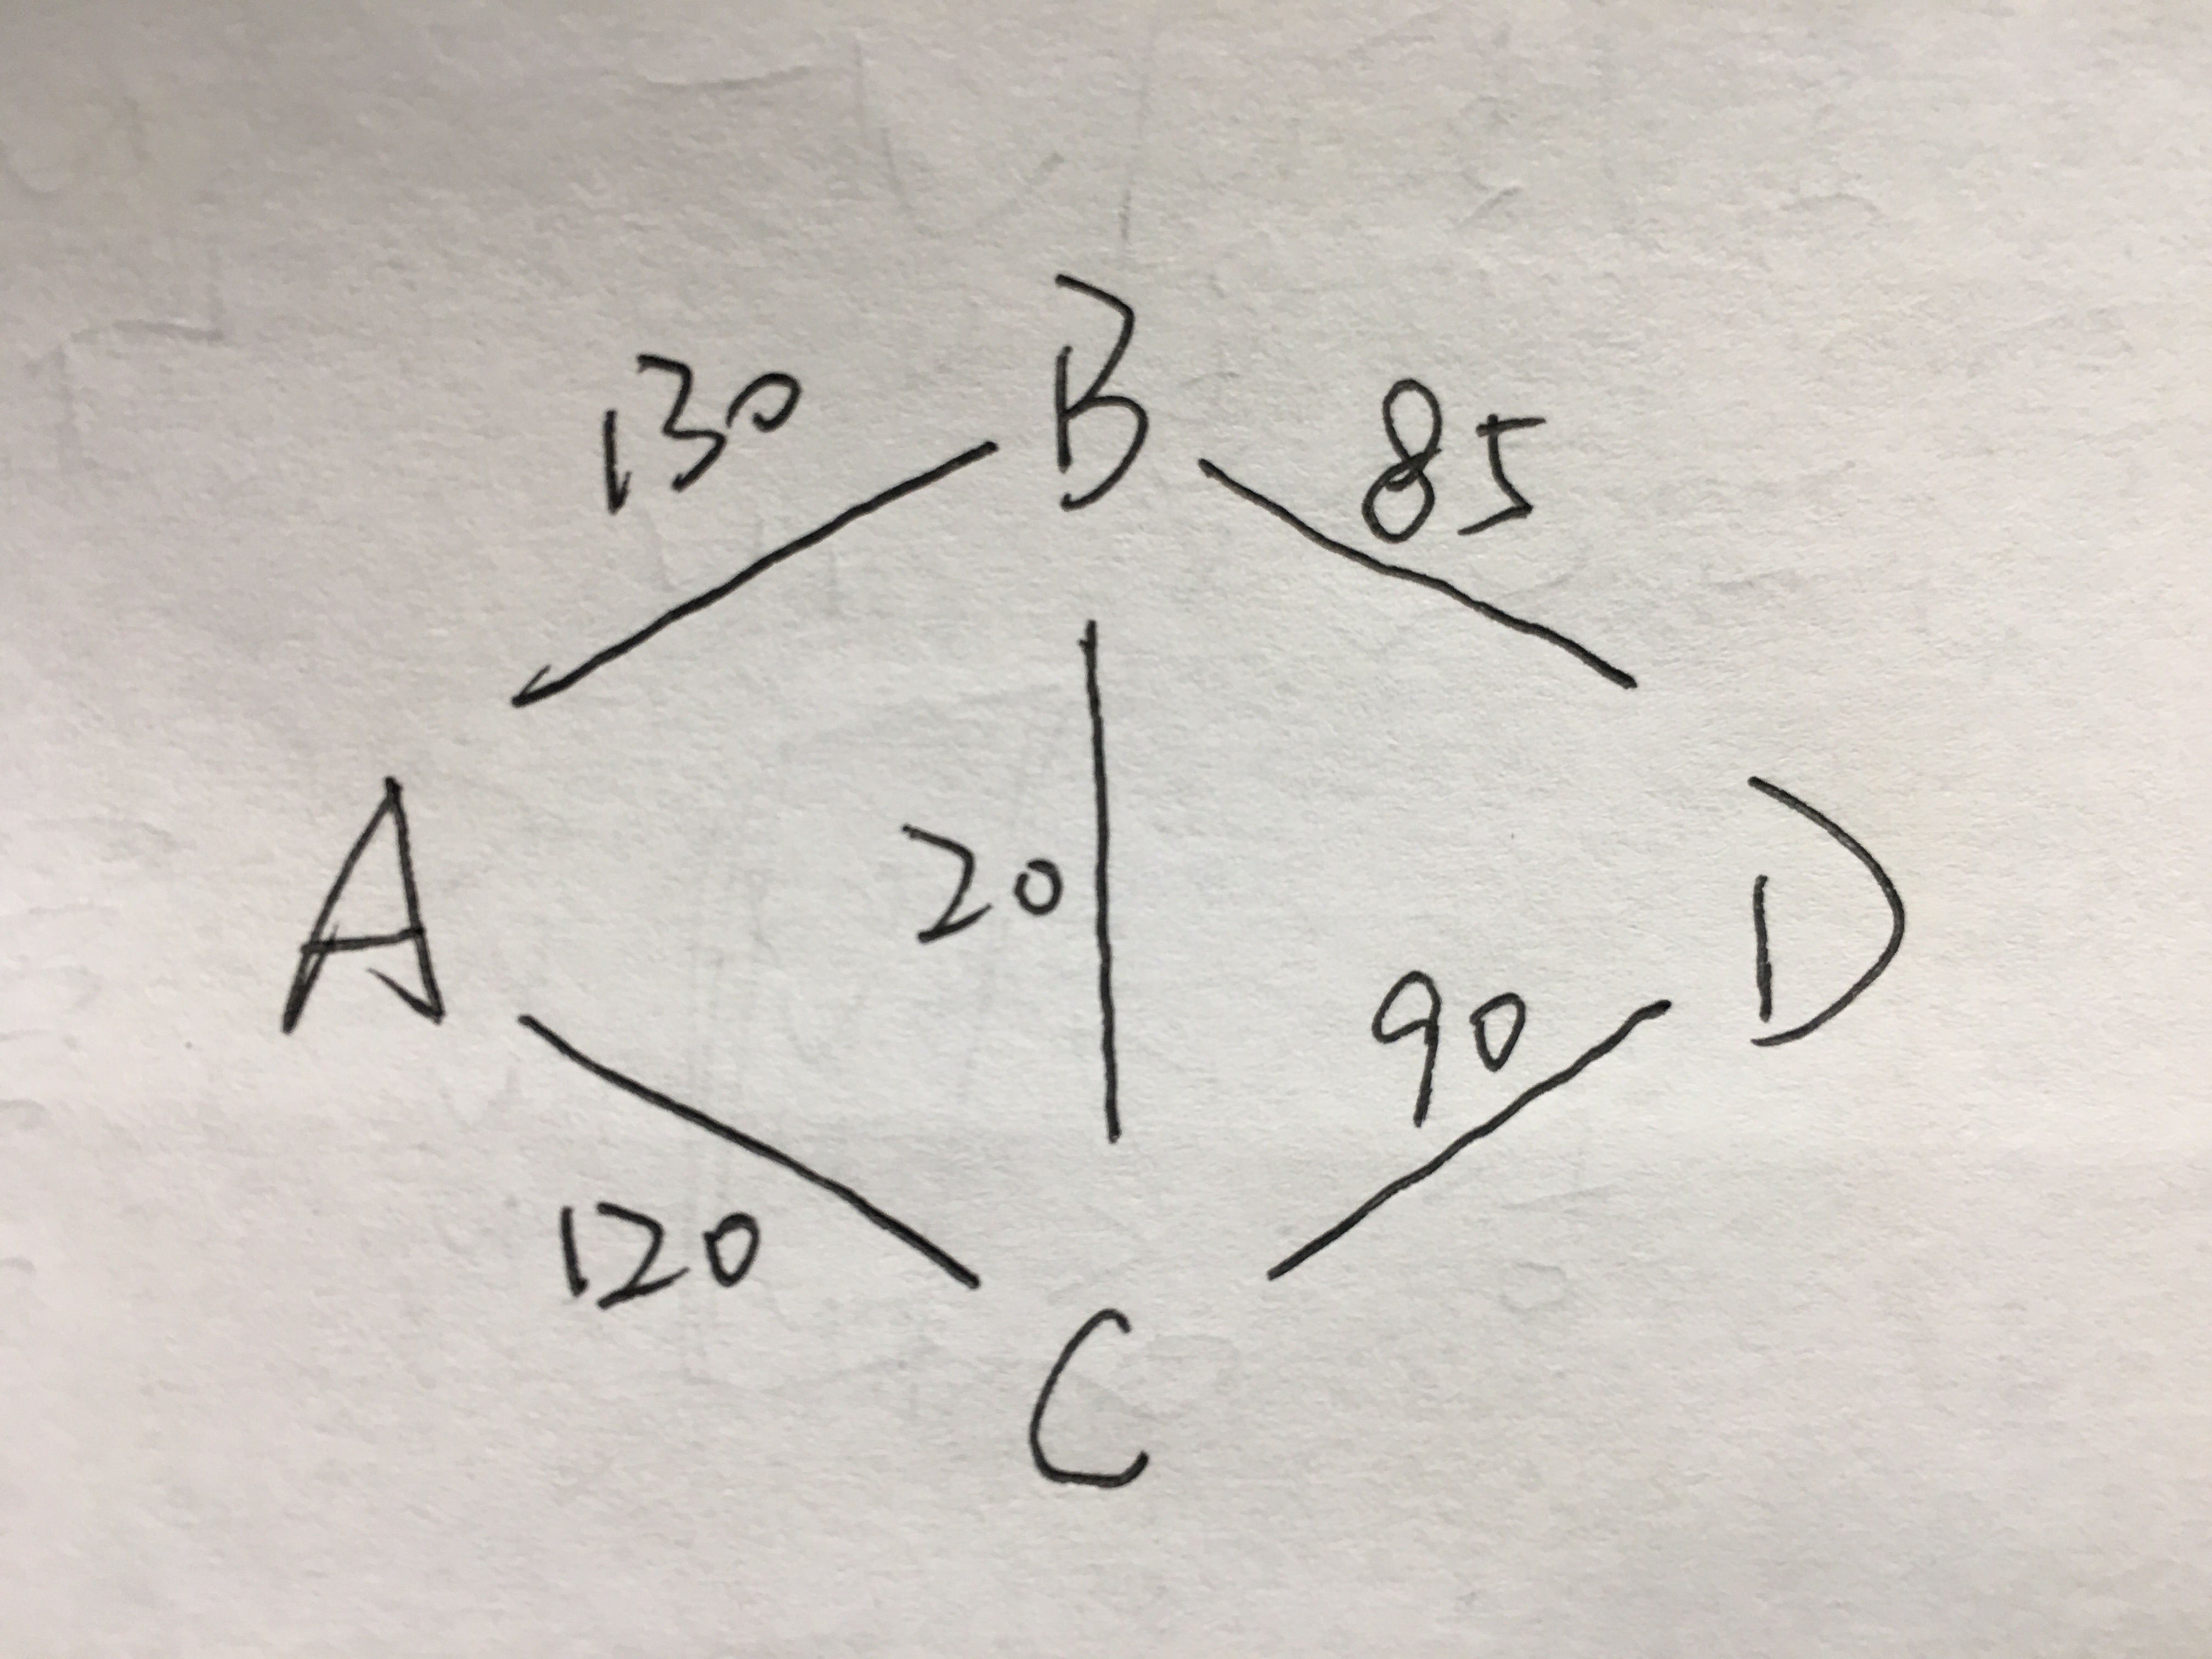 B
130
85
A
20
D
90
120
C